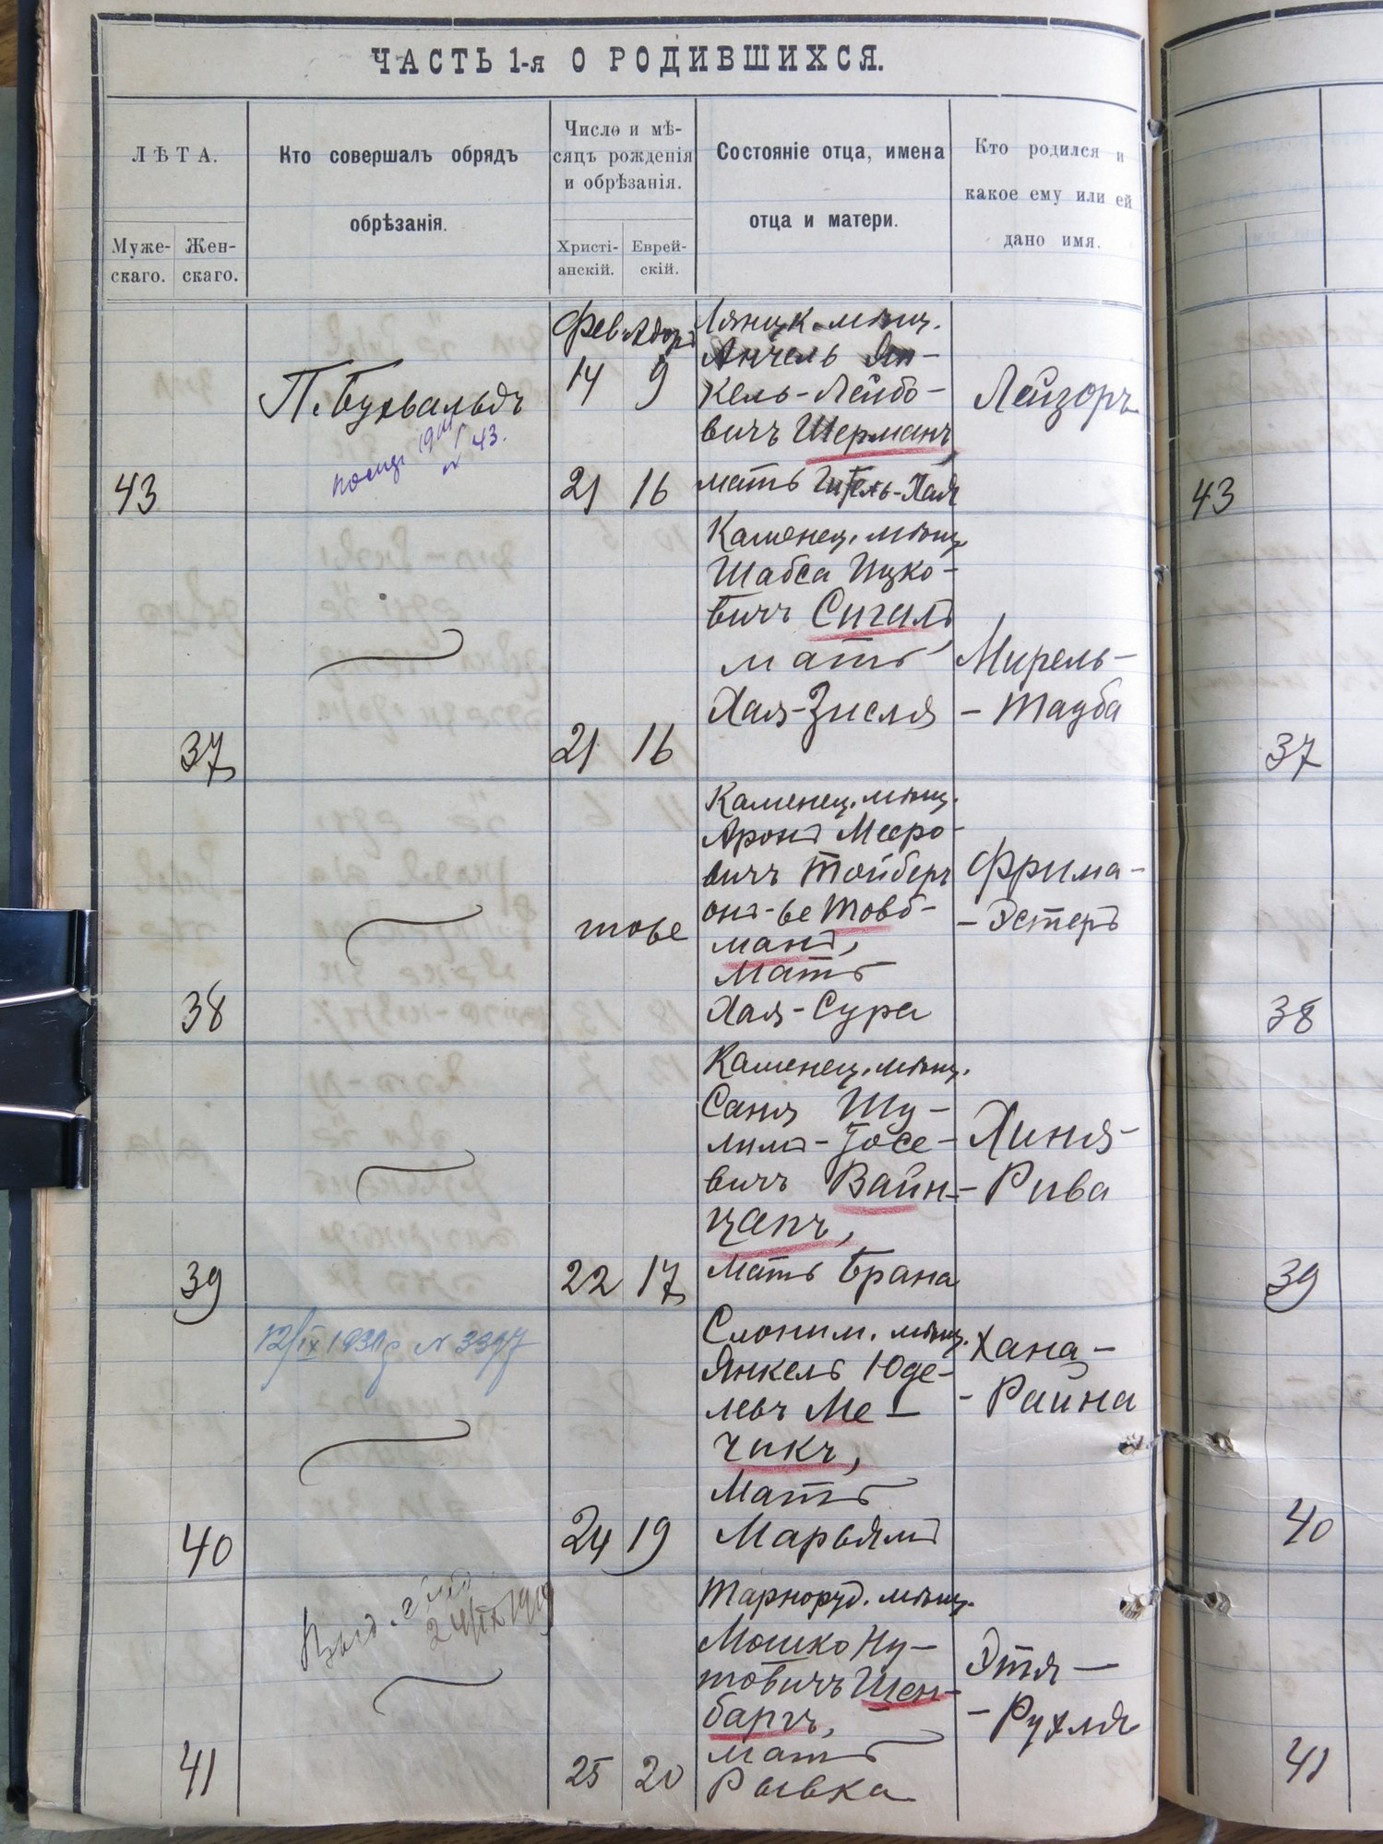 ЧАСТЬ 1-я О РОДИВШИХСЯ.
ЛѢТА.
Муже-
скаго.
Жен-
скаго.
Кто совершалъ обрядъ
обрѣзанія.
Число и мѣ-
сяцъ рожденія
и обрѣзанія.
Христі-
анскій.
Еврей-
скій.
Состояніе отца, имена
отца и матери.
Кто родился и
какое ему или ей
дано имя.
43
П. Бухвальдъ
1901
№ 43.
Фев. Адаръ
14 9
21 16
мѣщ.
Анчель Ян-
кель-Лейбо-
вичъ Шерманъ,
мать Гитель-Хая
Лейзоръ
43
37
21 16
Каменец. мѣщ.
Шабса Ицко-
вичъ Сигалъ,
мать
Хая-Зисля
Мирель-
- Тауба
37
38
тоже
Каменец. мѣщ.
Аронъ Мееро-
вичъ Тойберг
онъ-же Товб-
манъ,
мать
Хая-Сура
Фрима-
- Эстеръ
38
39
22 17
Каменец. мѣщ.
Саня Шу-
лимъ-Іосе-
вичъ Вайн-
цапъ,
мать Брана
Хиня-
- Рива
39
12/IX 1931 г № 3397
40
24 19
Слоним. мѣщ.
Янкель Юде-
левъ Ме-
чикъ,
мать
Марьямъ
Хана-
- Раина
40
Выд.
24/IX 1919
41
25 20
Тарноруд. мѣщ.
Мошко Ну-
товичъ Шен-
баргъ,
мать
Рывка
Этя-
- Рухля
41